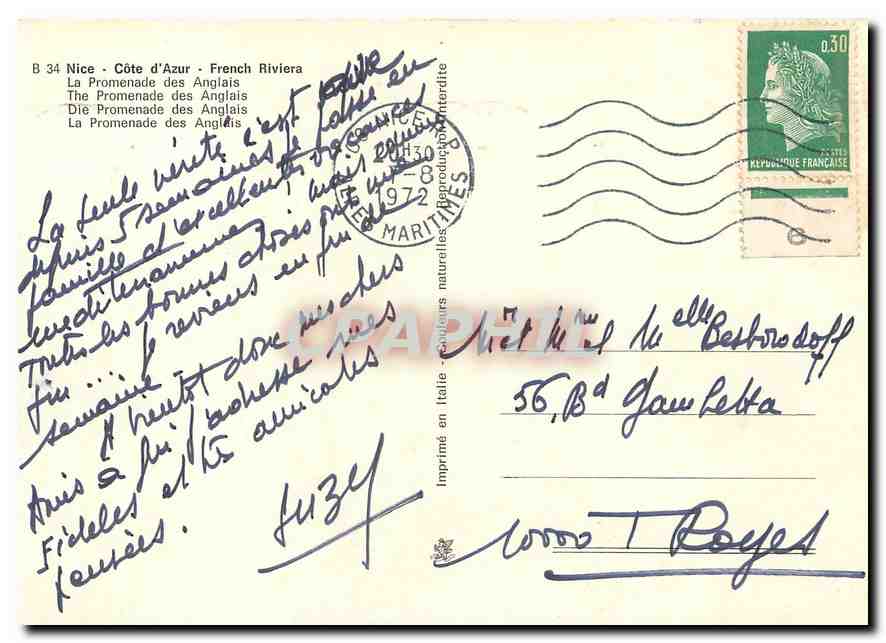 B 34 Nice - Côte d'Azur - French Riviera
La Promenade des Anglais
The Promenade des Anglais
Die Promenade des Anglais
La Promenade des Anglais
La seule vérité c'est
depuis 5 semaines je passe en
famille d'excellentes vacances
mediterranennes, mais comme
toutes les bonnes choses ont une
fin .... je reviens en fin de
semaine
A bientot donc mes chers
Amis à qui j'adresse mes
Fideles et très amicales
pensées.
Suzy
NICE R.P.
20H30
-8
1972
MARITIMES
Imprimé en Italie - Couleurs naturelles - Reproduction interdite
0,30
POSTES
RÉPUBLIQUE FRANÇAISE
6
CPAPHIL
Mr et Mme et Melle Besborodoff
56, Bd Gambetta
10000 TROYES